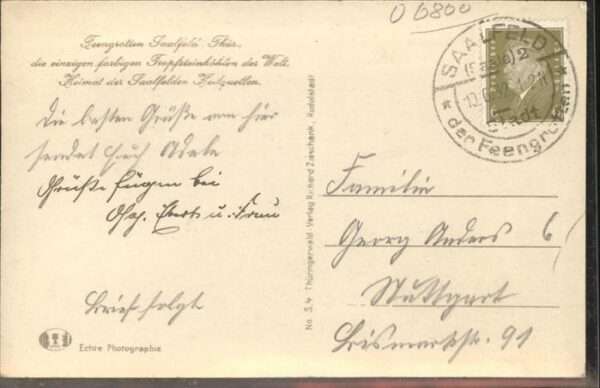 O 6800
Feengrotten Saalfeld Thür.
die einzigen farbigen Tropfsteinhöhlen der Welt.
Heimat der Saalfelder Heilquellen.
Die besten Grüße von hier
sendet Euch Adele
Grüße fügen bei
u. Frau
Brief folgt
Echte Photographie
No. S.4 Thüringerwald-Verlag Richard Zieschank, Rudolstadt
SAALFELD
(Saale) 2
Stadt
der Feengrotten
Familie
Georg Anders
Stuttgart
Bismarckstr. 91